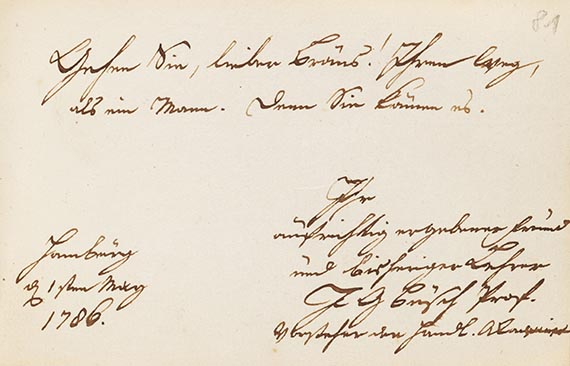 81
Gehen Sie, lieber Bräus! Ihren Weg,
als ein Mann. Denn Sie können es.
Ihr
aufrichtig ergebener Freund
und bisheriger Lehrer
J G Büsch Prof.
Vorsteher der Handl. Academie
Hamburg
d 1sten May
1786.